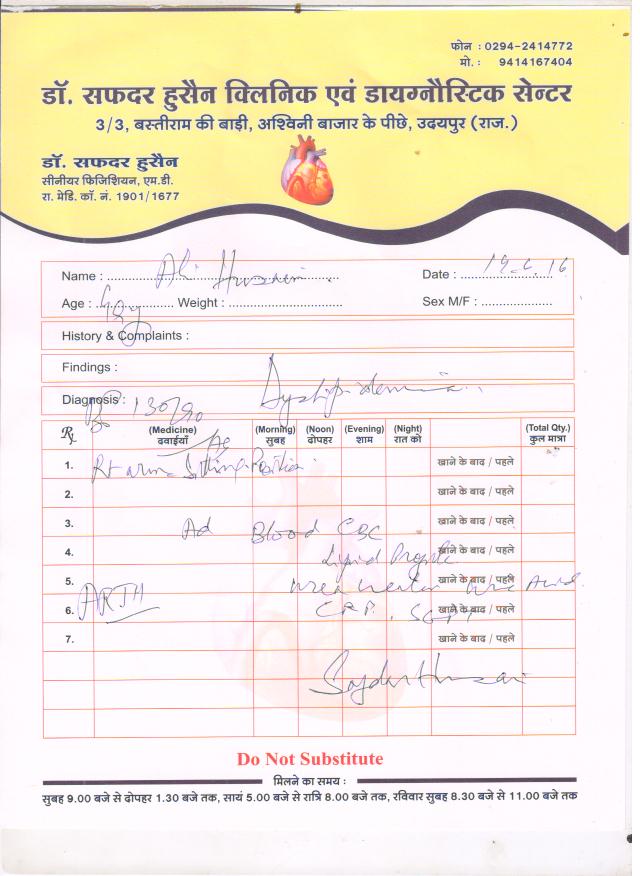 फोन : 0294-2414772
मो. : 9414167404
डॉ. सफदर हुसैन क्लिनिक एवं डायग्नौस्टिक सेन्टर
3/3, बस्तीराम की बाड़ी, अश्विनी बाजार के पीछे, उदयपुर (राज.)
डॉ. सफदर हुसैन
सीनीयर फिजिशियन, एम.डी.
रा. मेडि. कॉ. नं. 1901/1677
Name : Ali Husain Date :
Age : Weight : Sex M/F :
History & Complaints :
Findings :
Diagnosis : Dyslipidemia
130/90
Rx (Medicine) (Morning) (Noon) (Evening) (Night) (Total Qty.)
दवाईयाँ सुबह दोपहर शाम रात को कुल मात्रा
1. Rt arm Sitting Position खाने के बाद / पहले
2. खाने के बाद / पहले
3. Ad Blood CBC खाने के बाद / पहले
4. Lipid Profile खाने के बाद / पहले
5. Urea Uric Acid खाने के बाद / पहले
6. CRP, SGPT खाने के बाद / पहले
7. खाने के बाद / पहले
Do Not Substitute
मिलने का समय :
सुबह 9.00 बजे से दोपहर 1.30 बजे तक, सायं 5.00 बजे से रात्रि 8.00 बजे तक, रविवार सुबह 8.30 बजे से 11.00 बजे तक